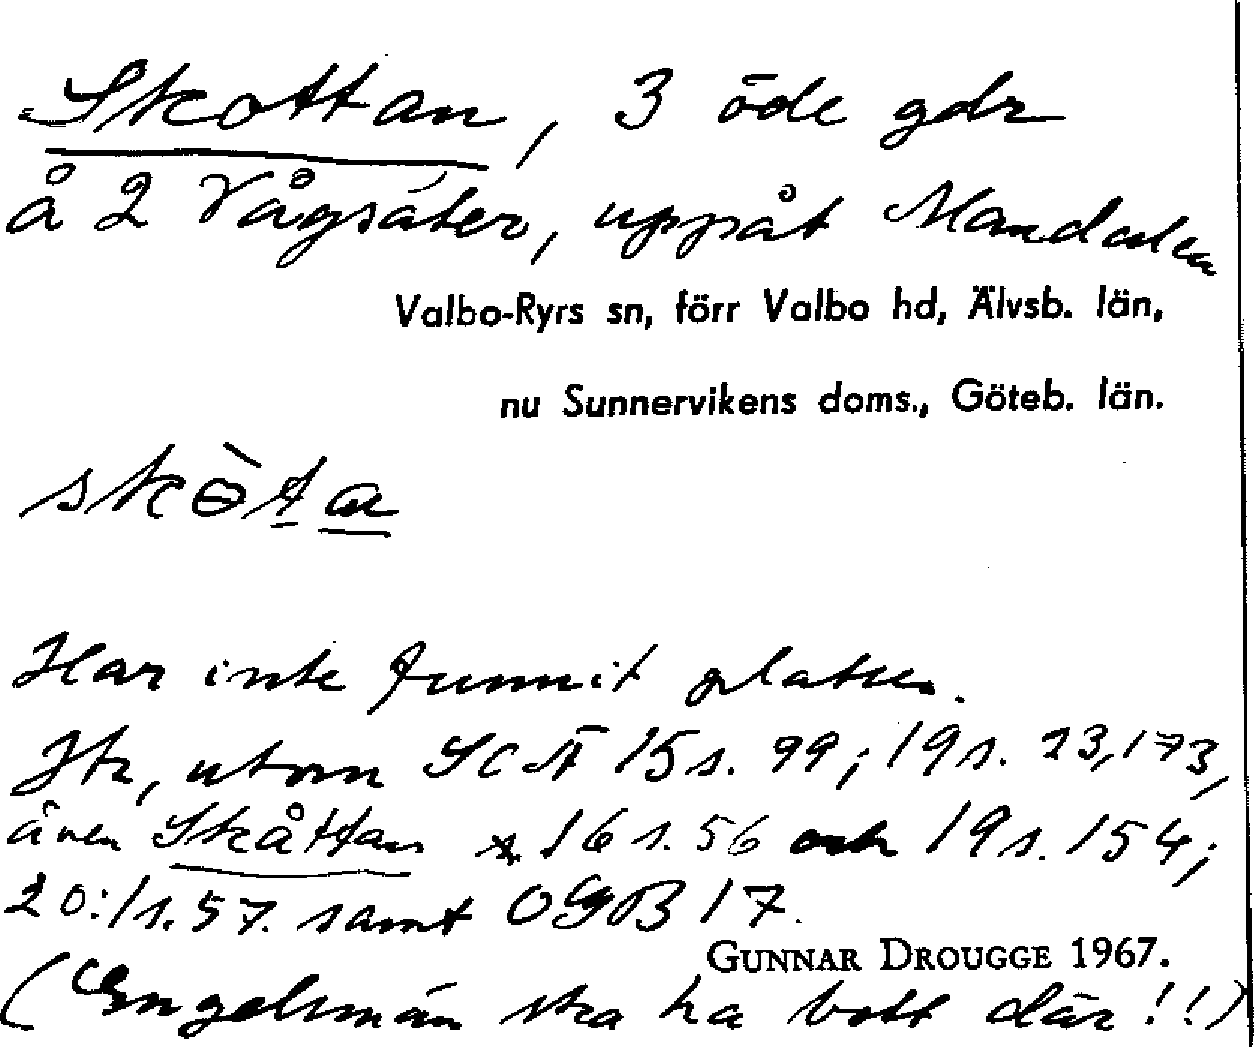 Skottan, 3 öde gdr
å 2 Vågsäter, uppåt Mandalen
Valbo-Ryrs sn, förr Valbo hd, Älvsb. län,
nu Sunnervikens doms., Göteb. län.
skɵ̀ta
Har inte funnit platsen.
Jfr, utom SCÄ 15 s. 99; 19 s. 23, 173,
även Skåttan 16 s. 56 och 19 s. 154;
20:1 s. 57. samt OGB 17.
GUNNAR DROUGGE 1967.
(Engelsmän ska ha bott där!!)